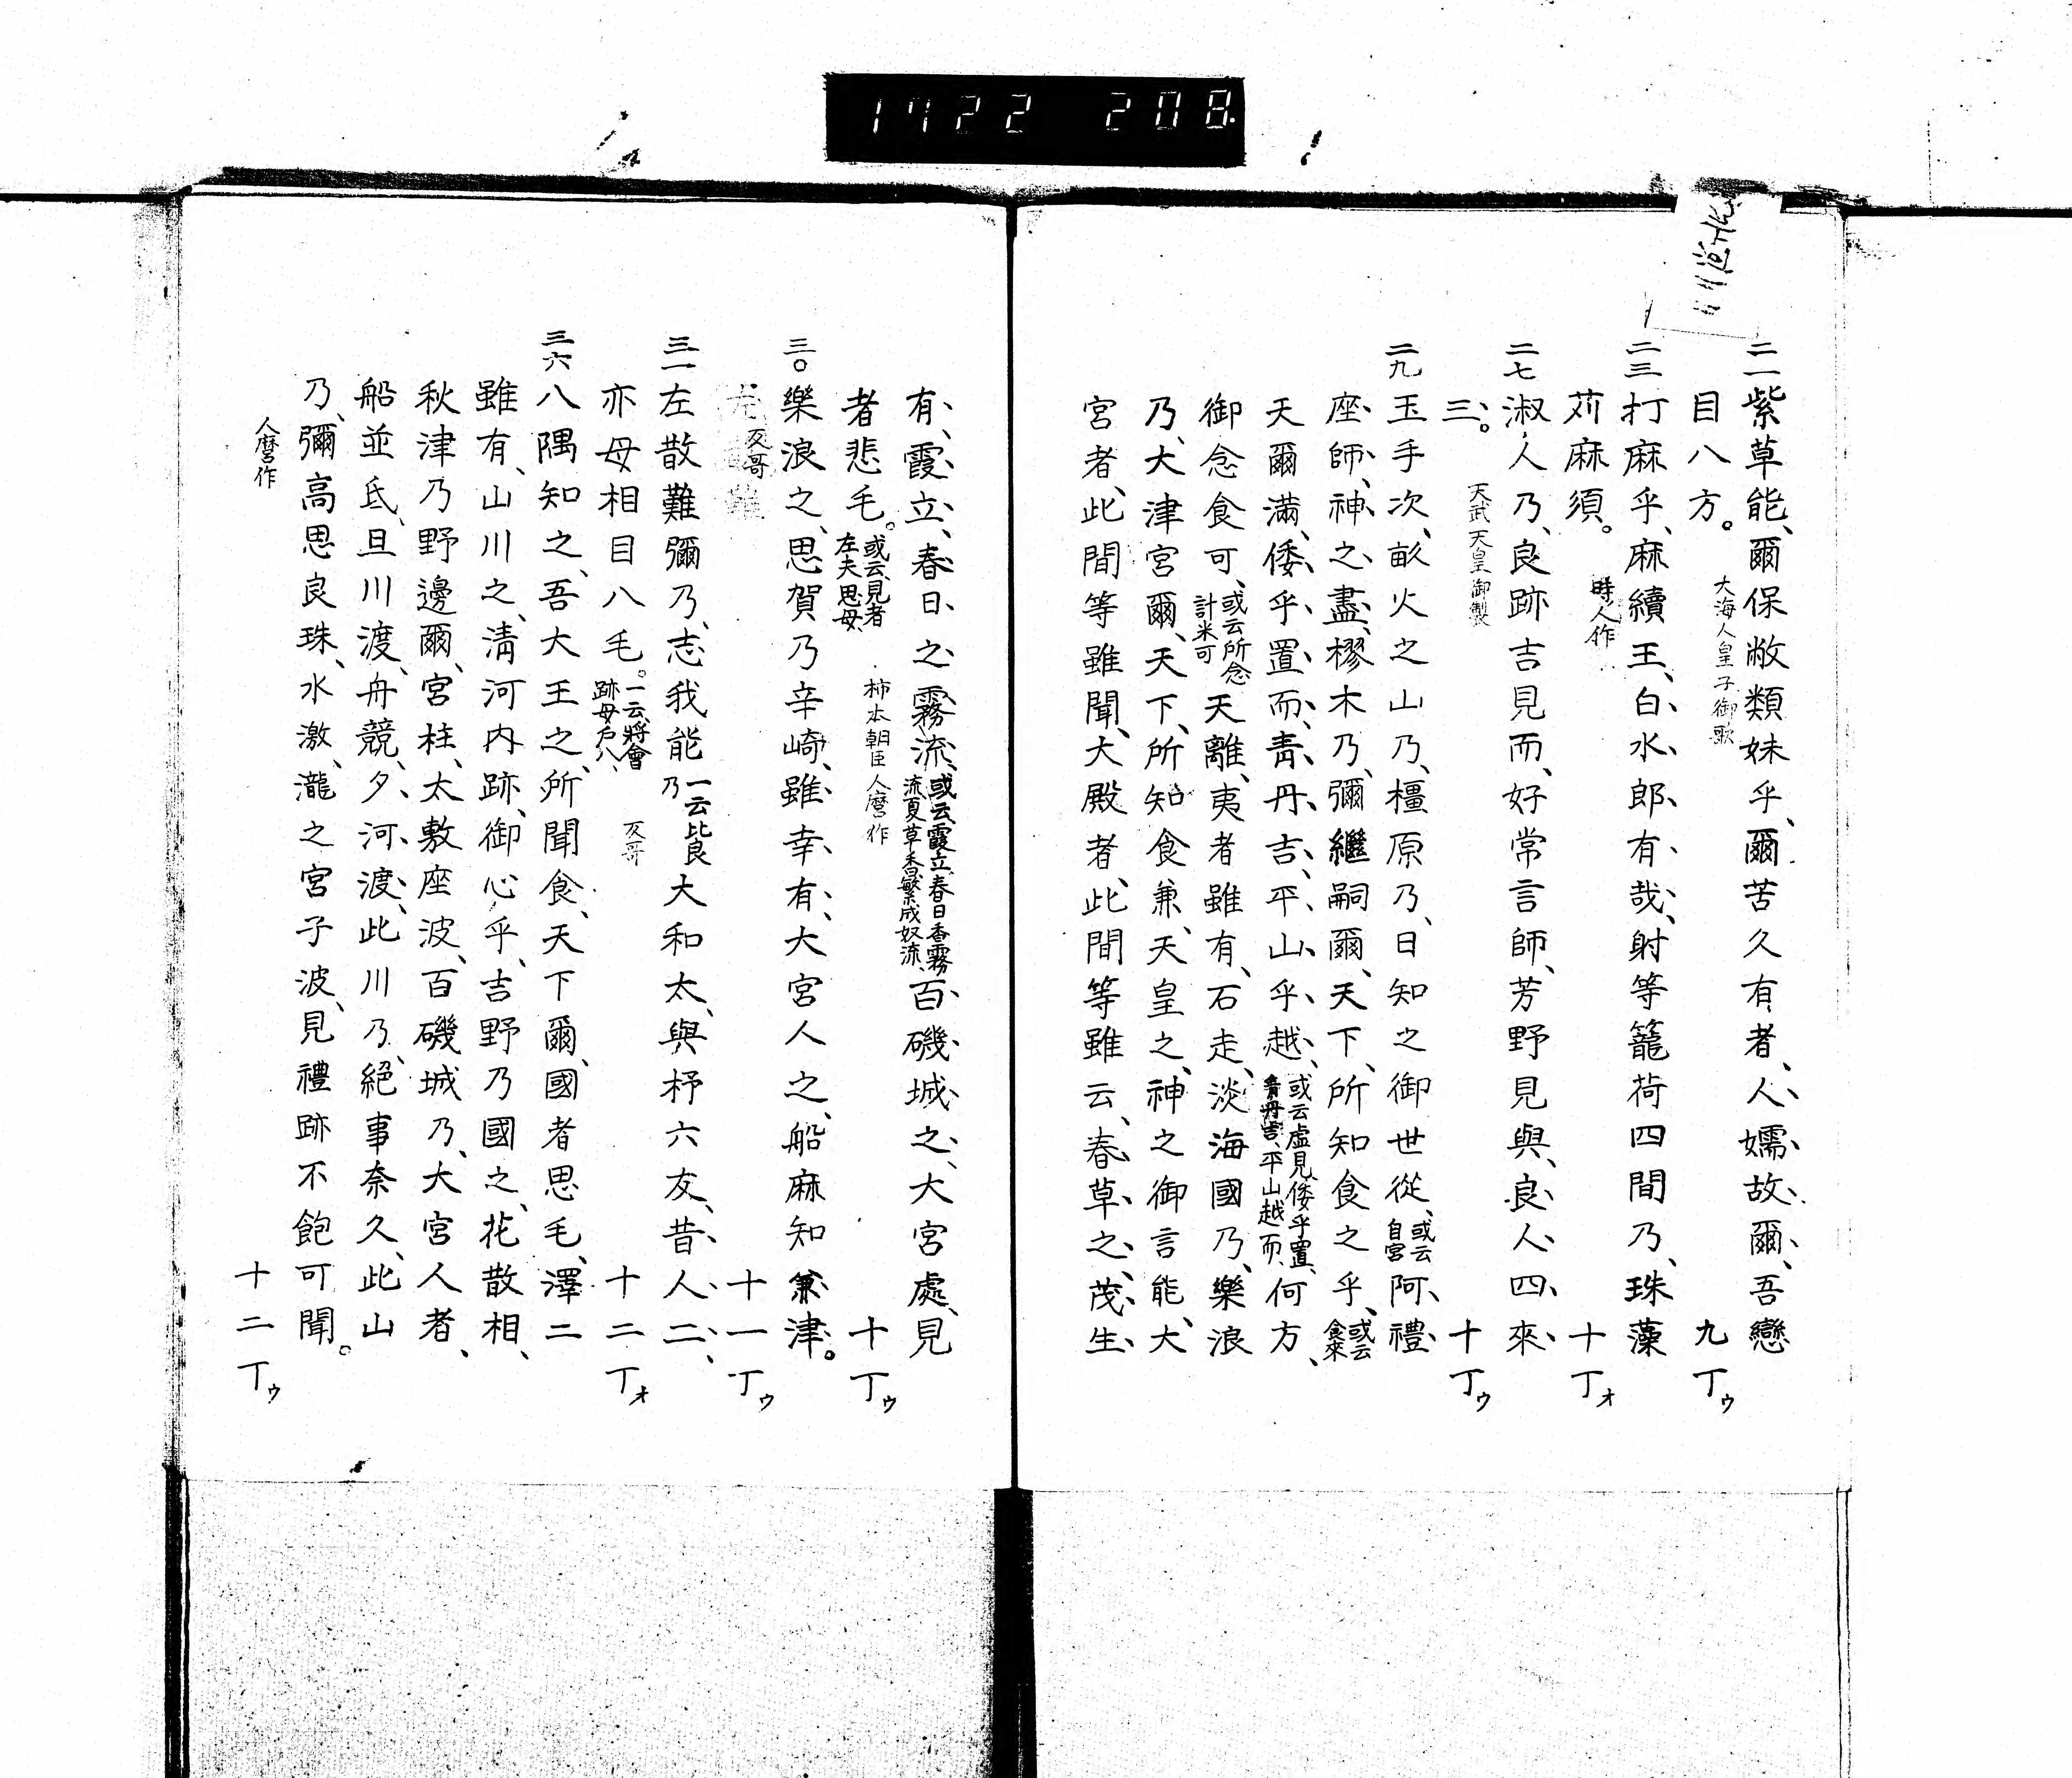 1722 208
二一紫草能、爾保敝類妹乎、爾苦久有者、人、嬬、故、爾、吾戀
目八方。 大海人皇子御歌 九丁ゥ
二三打麻乎、麻續王、白、水、郎、有、哉、射等籠荷四間乃、珠藻
苅麻須。 時人作 十丁ォ
二七淑人乃、良跡吉見而、好常言師、芳野見與、良、人、四、來、
三、。 天武天皇御製 十丁ゥ
二九玉手次、畝火之山乃、橿原乃、日知之御世從、或云自宮阿、禮、
座、師、神、之、盡、樛木乃、彌繼嗣爾、天下、所知食之乎、或云食來
天爾滿、倭、乎、置、而、青、丹、吉、平、山、乎、越、或云虛見、倭乎置、青丹吉、平山越而、何方、
御念食可、或云所念計米可天離、夷者雖有、石走、淡海國乃、樂浪
乃、大津宮爾、天下、所知食兼、天皇之、神之御言能、大
宮者、此間等雖聞、大殿者、此間等雖云、春、草、之、茂、生、
有、霞、立、春、日、之霧、流、或云霞立、春日香霧流、夏草香、繁成奴流、百、磯、城、之、大宮處、見
者悲毛。或云、見者左夫思母、 柿本朝臣人麿作 十丁ゥ
三〇樂浪之、思賀乃辛崎、雖、幸、有、大宮人之、船麻知兼、津。
反哥 十一丁ゥ
三一左散難彌乃、志我能一云比良乃大和太、與杼六友、昔、人、二、
亦母相目八毛。一云、將會跡母戶八、 反哥 十二丁ォ
三六八隅知之、吾大王之、所聞食、天下爾、國者思毛、澤二
雖有、山川之、淸河内跡、御心乎、吉野乃國之、花散相、
秋津乃野邊爾、宮柱、太敷座波、百磯城乃、大宮人者、
船並氐、旦川渡、舟競、夕、河、渡、此川乃、絕事奈久、此山
乃、彌高思良珠、水激、瀧之宮子波、見禮跡不飽可聞。
人麿作 十二丁ゥ